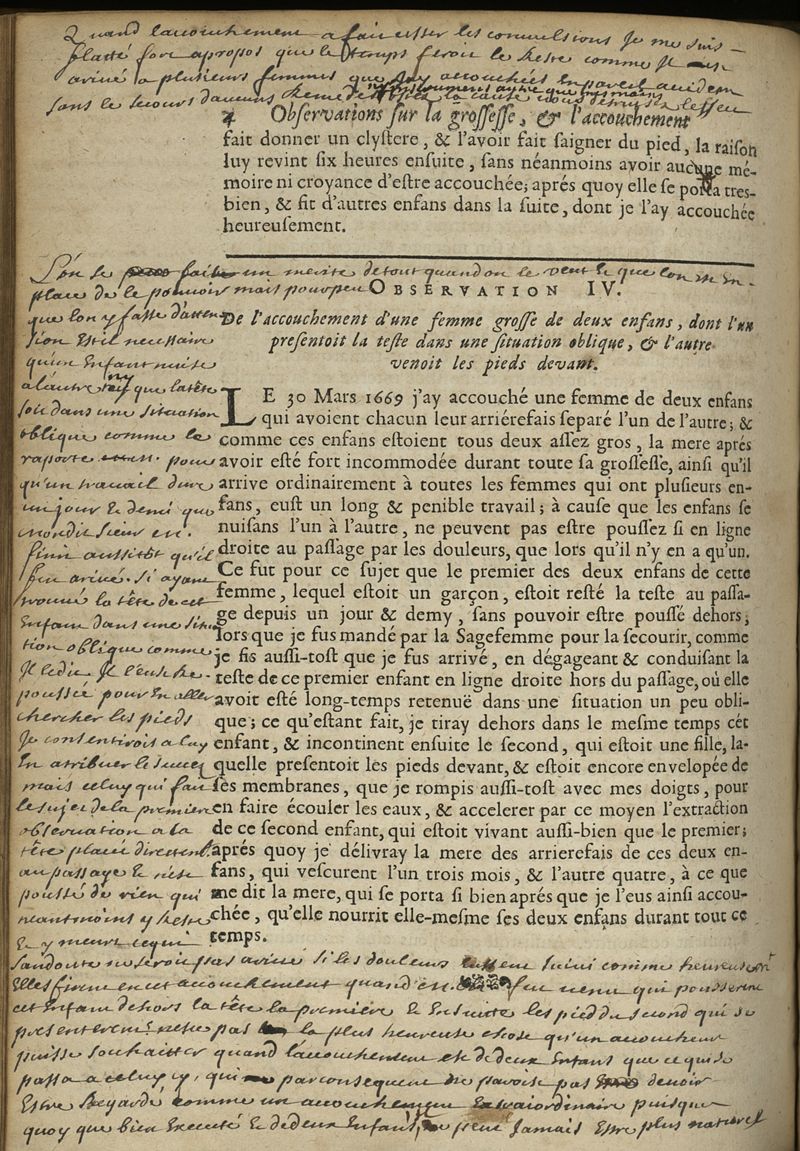 Quand laccouchement a fait cesser les convulsions Je me suis
flatté fort apropos que le temps feroit le Reste comme Je
arivé a plusieurs femmes que Jay accouchées En pareil accident
sans le secours daucuns Remede
4 Observations sur la grossesse, & l'accouchement
fait donner un clystere, & l'avoir fait saigner du pied, la raison
luy revint six heures ensuite, sans néanmoins avoir aucune mé-
moire ni croyance d'estre accouchée; aprés quoy elle se porta tres-
bien, & fit d'autres enfans dans la suite, dont je l'ay accouchée
heureusement.
L'on se fait un merite de tout quand on le veut
place de le pouvoir mais pour peu
OBSERVATION IV.
que lon y fasse d'atten-
De l'accouchement d'une femme grosse de deux enfans, dont l'un
presentoit la teste dans une situation oblique, & l'autre
venoit les pieds devant.
sion Est il necessaire
qu'un Enfant nuise
a lautre ny que la tête
soit dans une situation
oblique comme le
raporte pour
qu'un travail dure
un jour & demi que
mondit sieur en
finir aussitôt qu'il
fut arivé. si ayant
trouvé la tête de cet
Enfant dans une situa
tion oblique comme
Il le dit Il l'eust Re-
poussée pour En aller
chercher les pieds
Je consentirois a luy
En atribuer le succez
mais celuy qui fait
le sujet de la premiere
observation a la
tête placée directemt.
au passage & n'est
poussé de rien qui
neantmoins y Reste
& y meurt ce qui
LE 30 Mars 1669 j'ay accouché une femme de deux enfans
qui avoient chacun leur arriérefais separé l'un de l'autre; &
comme ces enfans estoient tous deux assez gros, la mere aprés
avoir esté fort incommodée durant toute sa grossesse, ainsi qu'il
arrive ordinairement à toutes les femmes qui ont plusieurs en-
fans, eust un long & penible travail; à cause que les enfans se
nuisans l'un à l'autre, ne peuvent pas estre poussez si en ligne
droite au passage par les douleurs, que lors qu'il n'y en a qu'un.
Ce fut pour ce sujet que le premier des deux enfans de cette
femme, lequel estoit un garçon, estoit resté la teste au passa-
ge depuis un jour & demy, sans pouvoir estre poussé dehors;
lors que je fus mandé par la Sagefemme pour la secourir, comme
je fis aussi-tost que je fus arrivé, en dégageant & conduisant la
teste de ce premier enfant en ligne droite hors du passage, où elle
avoit esté long-temps retenuë dans une situation un peu obli-
que; ce qu'estant fait, je tiray dehors dans le mesme temps cét
enfant, & incontinent ensuite le second, qui estoit une fille, la-
quelle presentoit les pieds devant, & estoit encore envelopée de
ses membranes, que je rompis aussi-tost avec mes doigts, pour
en faire écouler les eaux, & accelerer par ce moyen l'extraction
de ce second enfant, qui estoit vivant aussi-bien que le premier;
aprés quoy je délivray la mere des arrierefais de ces deux en-
fans, qui vescurent l'un trois mois, & l'autre quatre, à ce que
me dit la mere, qui se porta si bien aprés que je l'eus ainsi accou-
chée, qu'elle nourrit elle-mesme ses deux enfans durant tout ce
temps.
sandoute ne seroit pas arivé si les douleurs Eussent suivi comme heureusemt
Elles firent en cet accouchement quand en fut venu qui pousserent
cet Enfant dehors la tête la premiere & Ensuite les pieds du second qui se
presenterent nest pas la plus heureuse chose qu'un accoucheur
puisse souhaitter quand l'accouchement est de deux Enfant que ce qui se
passa a celuy cy, qui par consequent ne pavoist pas devoir
Estre Regardé comme un accouchement Extraiordinaire puisque
quoy que bien Executé & de deux Enfant, ne peut Jamais Estre plus naturel